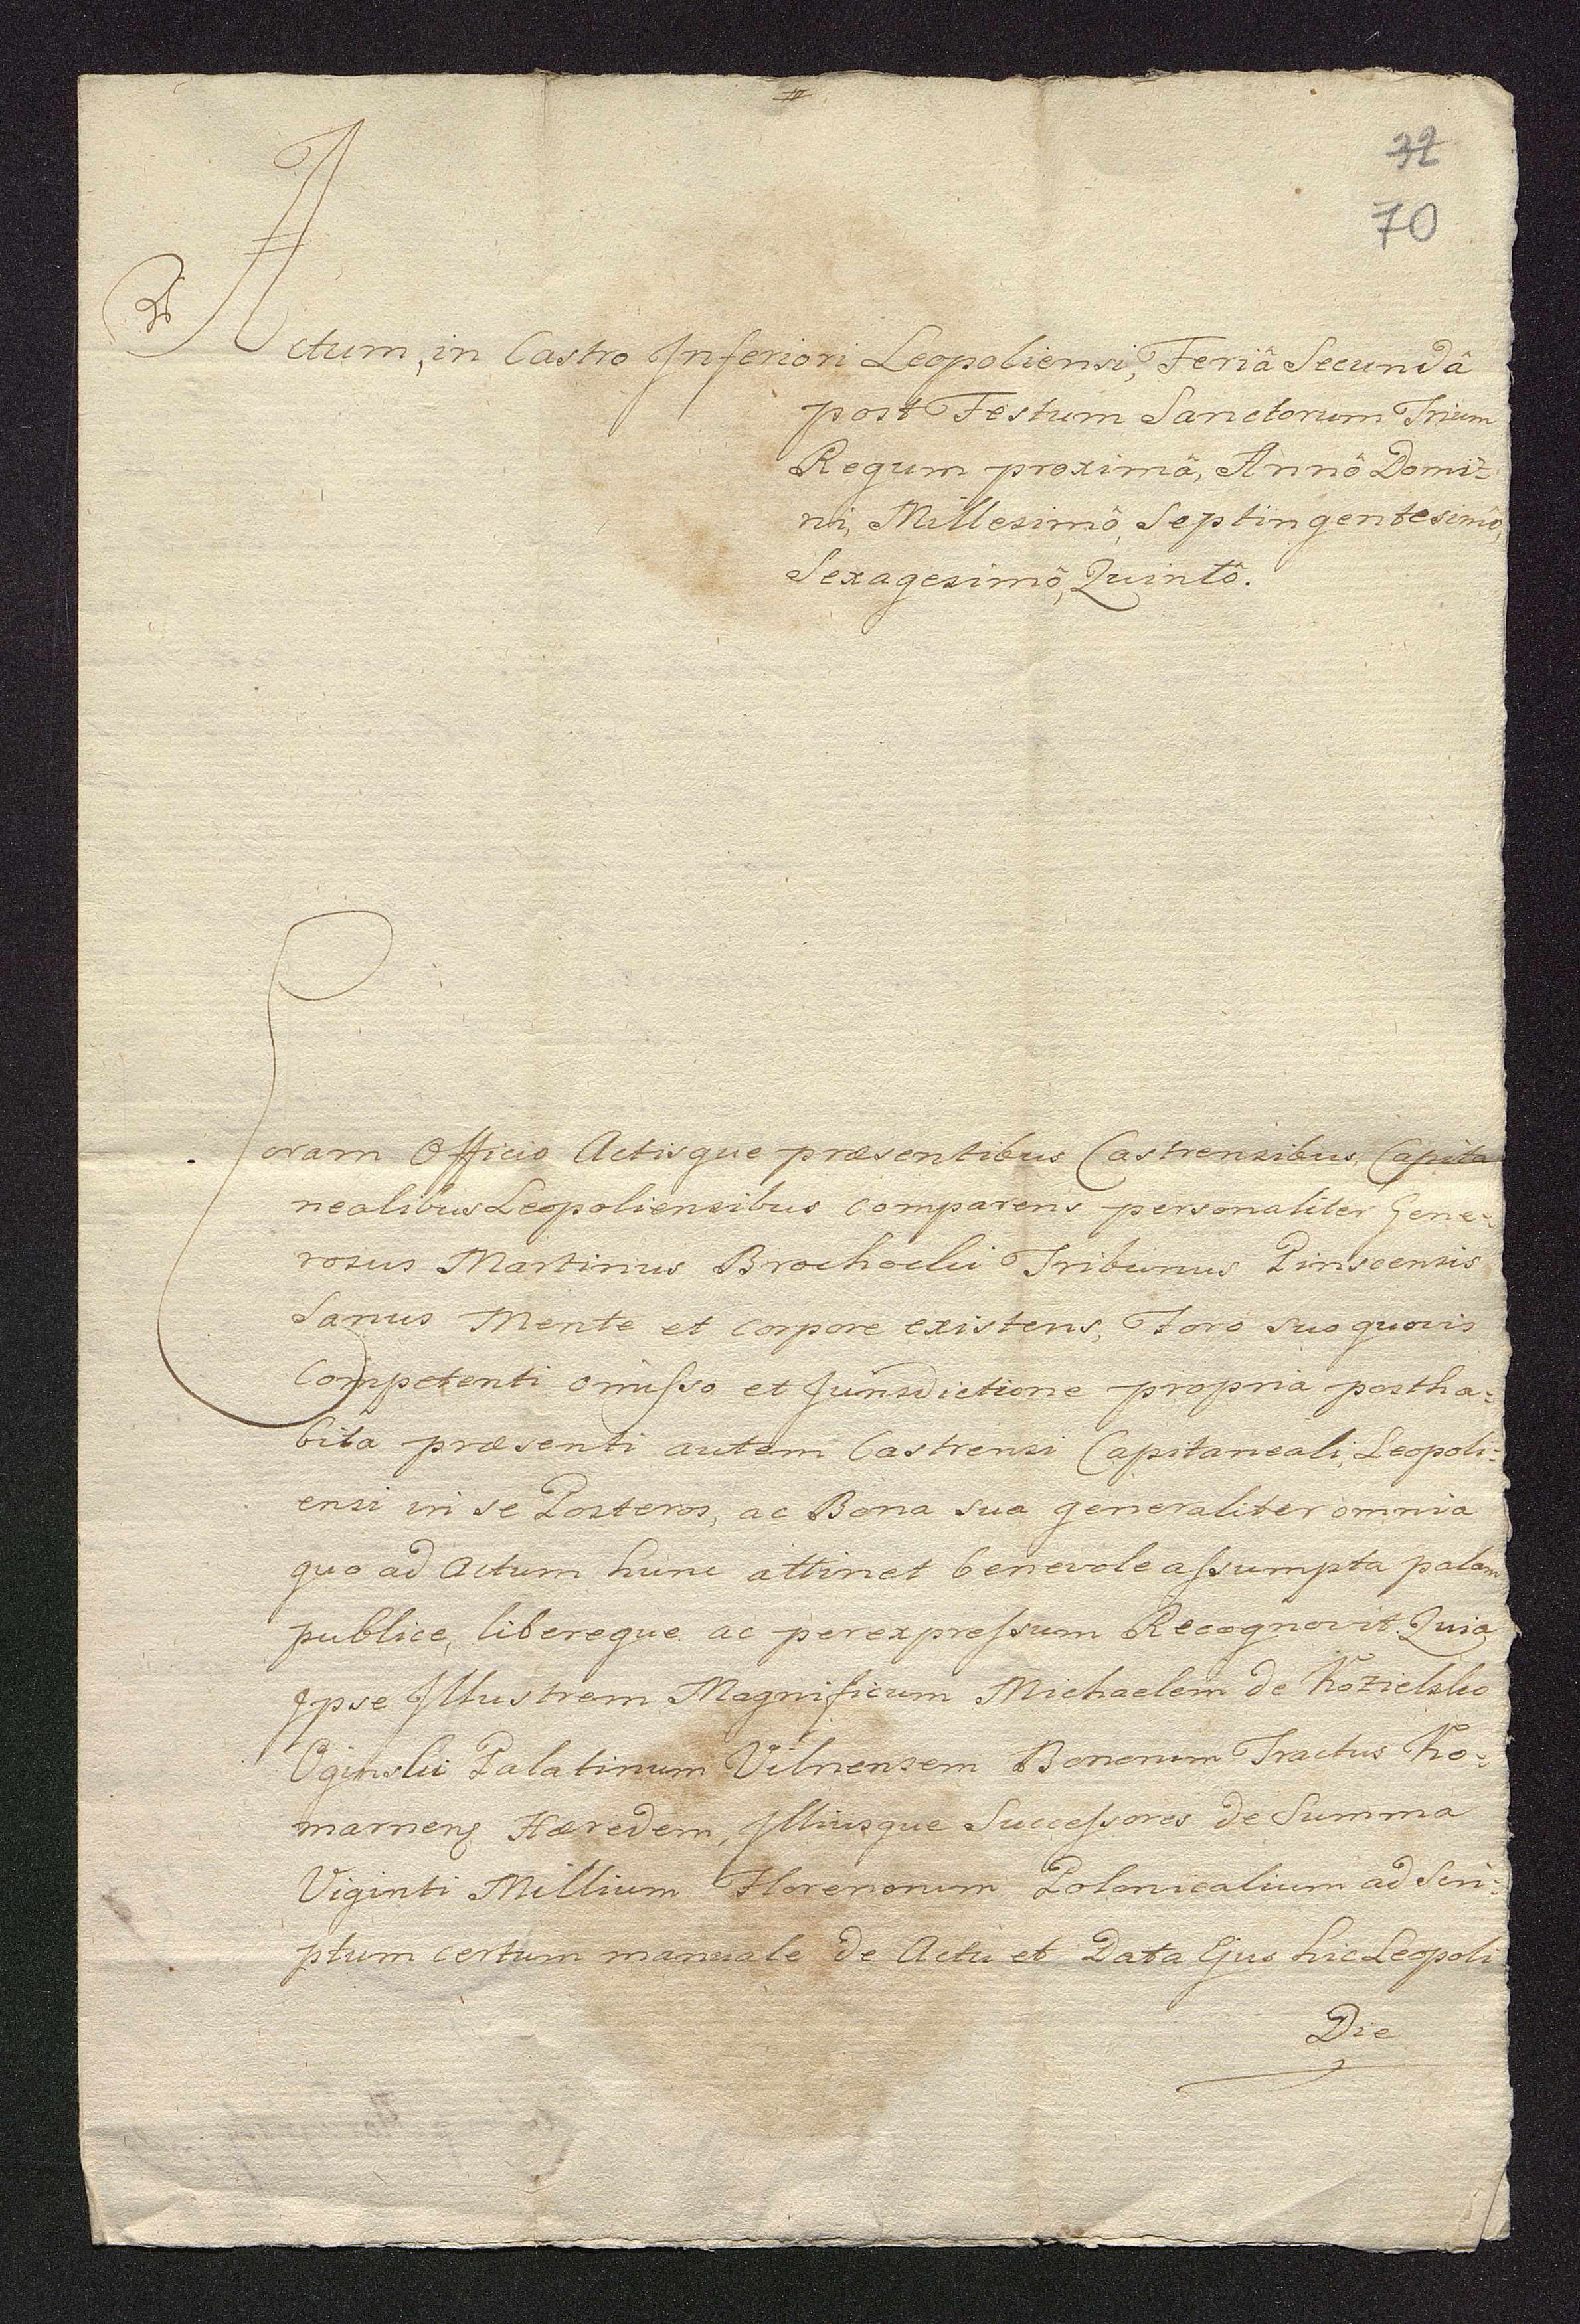 32
70
Actum, in Castro Inferiori Leopoliensi, Feriâ Secundâ
post Festum Sanctorum Trium
Regum proximâ, Annô Domi=
ni, Millesimô, Septingentesimô,
Sexagesimô, Quintô.
Coram Officio Actisque præsentibus Castrensibus, Capita
nealibus Leopoliensibus comparens personaliter Gene=
rosus Martinus Brochocki Tribunus Pinscensis
Sanus Mente et corpore existens, Foro suo quovis
Competenti omisso et Jurisdictione propria postha=
bita præsenti autem Castrensi Capitaneali, Leopoli=
ensi in se Posteros, ac Bona sua generaliter omnia
quo ad Actum hunc attinet benevole assumpta palam
publice, libereque ac per expressum Recognovit. Quia
Ipse Illustrem Magnificum Michaelem de Kozielsko
Oginski Palatinum Vilnensem Bonorum Tractus Ko=
marnens Hæredem, Illiusque Successores de Summa
Viginti Millium Florenorum Polonicalium ad Scri=
ptum certum manuale de Actu et Data Ejus hic Leopoli
Die